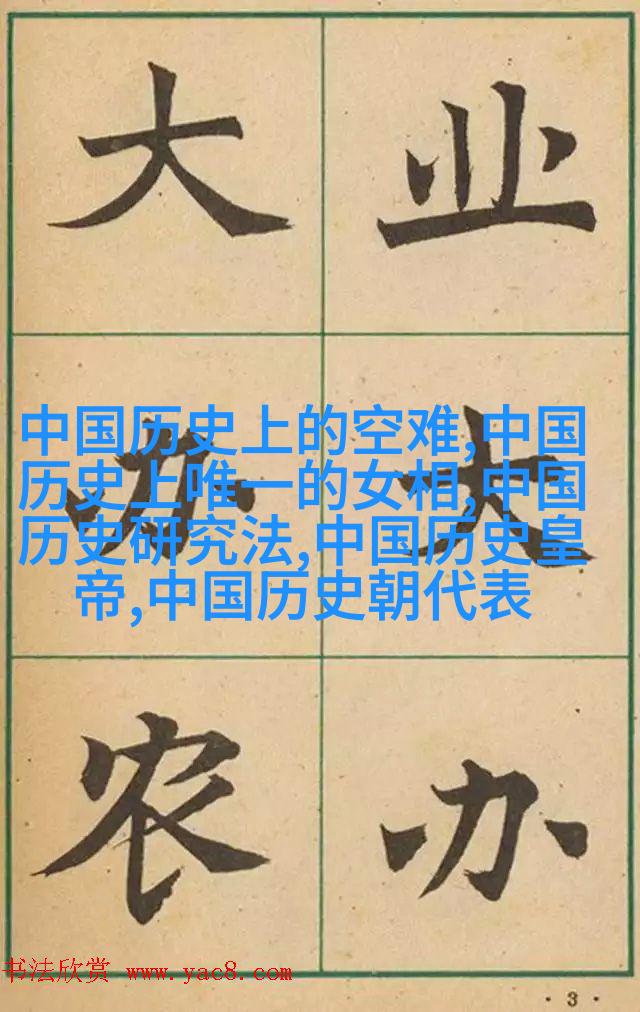 大办农
业大办
中国历史上的空难,中国
历史上唯一的女相,中国
历史研究法,中国历史皇
帝,中国历史朝代表
书法欣赏 www.yac8.com
·3·